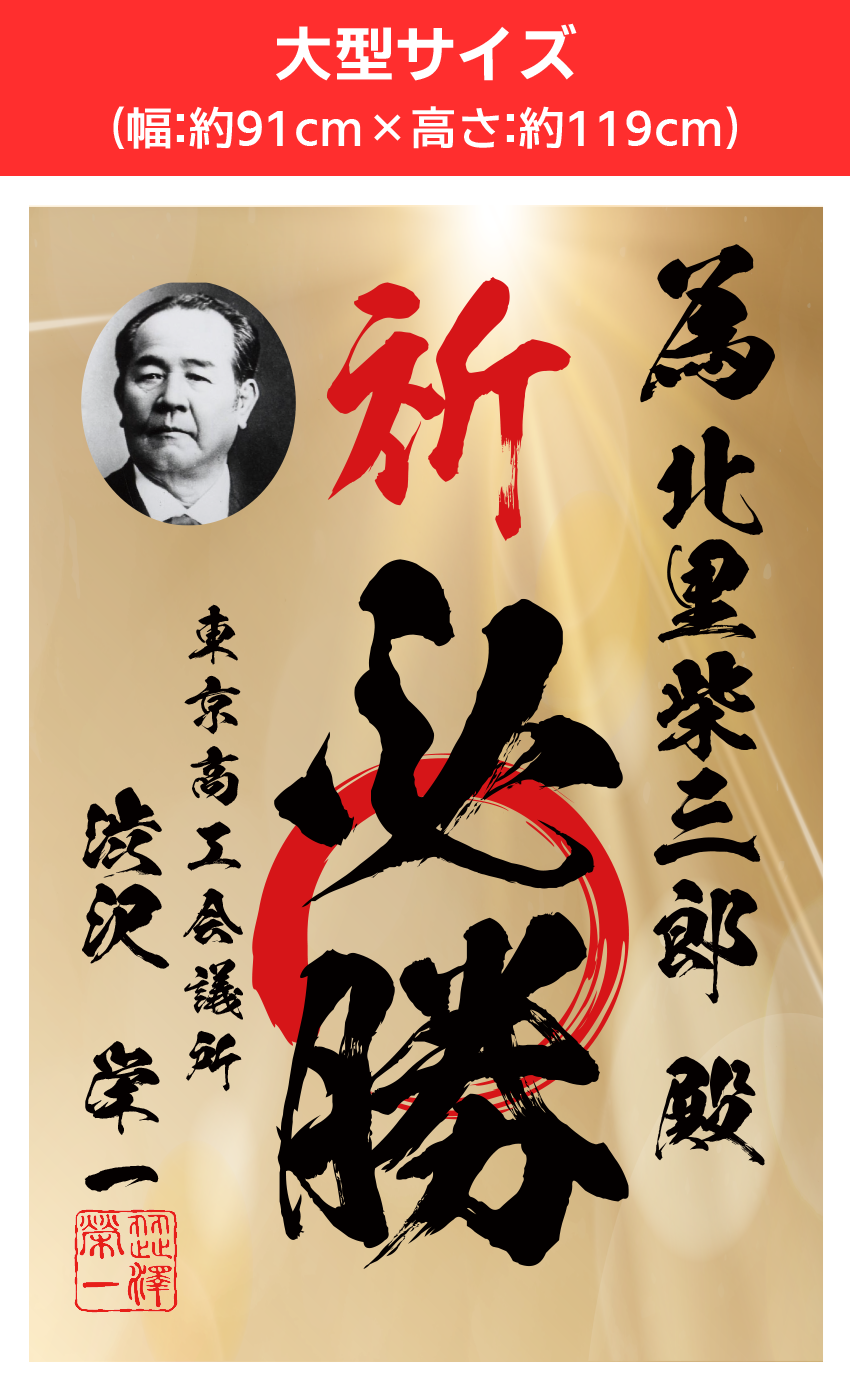 大型サイズ
(幅:約91cm×高さ:約119cm)
為 北里柴三郎 殿
祈
必勝
東京高工会議所
渋沢 栄一
澁澤
榮一